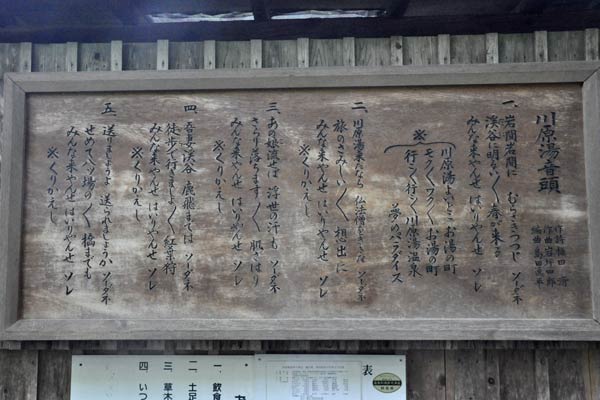 川原湯音頭
編曲 島田逸平
一、岩間岩間に むらさきつつじ ソーダネ
渓谷に明るい〱 春が来る
みんな来やんせ はいりやんせ ソレ
※
川原湯よいとこ お湯の町
モク〱ワク〱 お湯の町
行こ行こ 川原湯温泉
夢のパラダイス
二、川原湯来たなら 仏法僧をききな ソーダネ
旅のさみしい〱 想出に
みんな来やんせ はいりやんせ ソレ
※くりかえし
三、あの娘流せば 浮世の汗も ソーダネ
さらり落ちます〱 肌ざはり
みんな来やんせ はいりやんせ ソレ
※くりかえし
四、吾妻渓谷 鹿飛までは ソーダネ
徒歩で行きましょ〱 紅葉狩
みんな来やんせ はいりやんせ ソレ
※くりかえし
五、送りましょうよ 送られましょうか ソーダネ
せめて八ッ場の〱 橋までも
みんな来やんせ はいりやんせ ソレ
※くりかえし
表
一、飲食
二、土足
三、草木
四、いつ